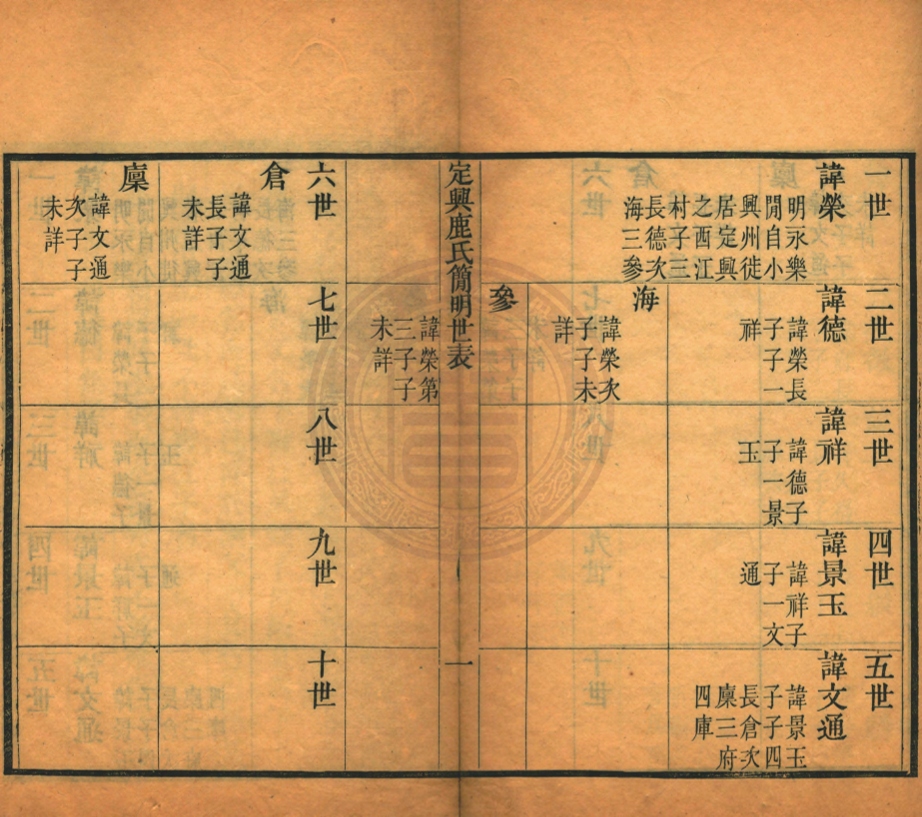 一世
諱榮
明永樂
閒自小
興州徙
居定興
之西江
村子三
長德次
海三參
二世
諱德
諱榮長
子子一
祥
海
諱榮次
子子未
詳
參
諱榮第
三子子
未詳
三世
諱祥
諱德子
子一景
玉
四世
諱景玉
諱祥子
子一文
通
五世
諱文通
諱景玉
子子四
長倉次
廩三府
四庫
定興鹿氏簡明世表
一
六世
倉
諱文通
長子子
未詳
廩
諱文通
次子子
未詳
七世
八世
九世
十世